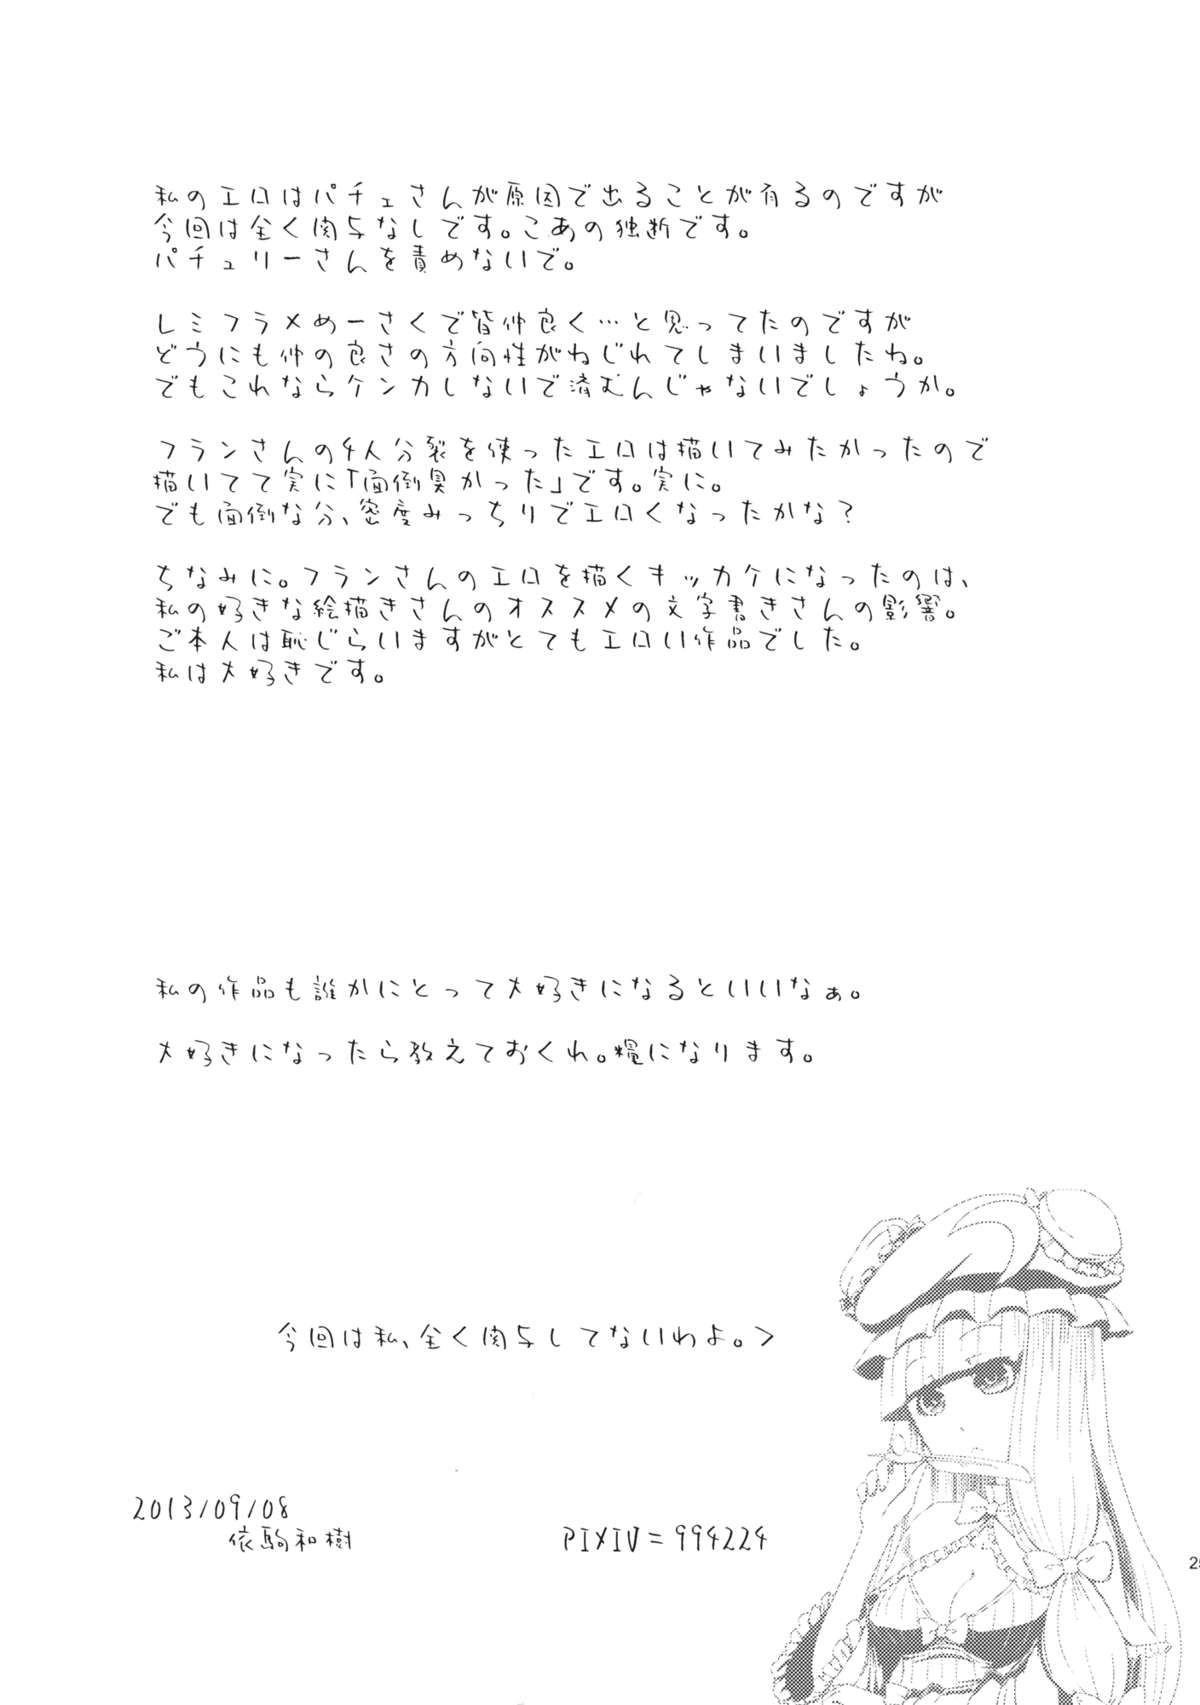 私のエロはパチェさんが原因で出ることが有るのですが
今回は全く関与なしです。こあの独断です。
パチュリーさんを責めないで。
レミフラメめーさくで皆仲良く…と思ってたのですが
どうにも仲の良さの方向性がねじれてしまいましたね。
でもこれならケンカしないで済むんじゃないでしょうか。
フランさんの4人分裂を使ったエロは描いてみたかったので
描いてて実に「面倒臭かった」です。実に。
でも面倒な分、密度みっちりでエロくなったかな？
ちなみに。フランさんのエロを描くキッカケになったのは、
私の好きな絵描きさんのオススメの文字書きさんの影響。
ご本人は恥じらいますがとてもエロい作品でした。
私は大好きです。
私の作品も誰かにとって大好きになるといいなぁ。
大好きになったら教えておくれ。糧になります。
今回は私、全く関与してないわよ。＞
2013/09/08
依駒和樹
PIXIV=994224
25